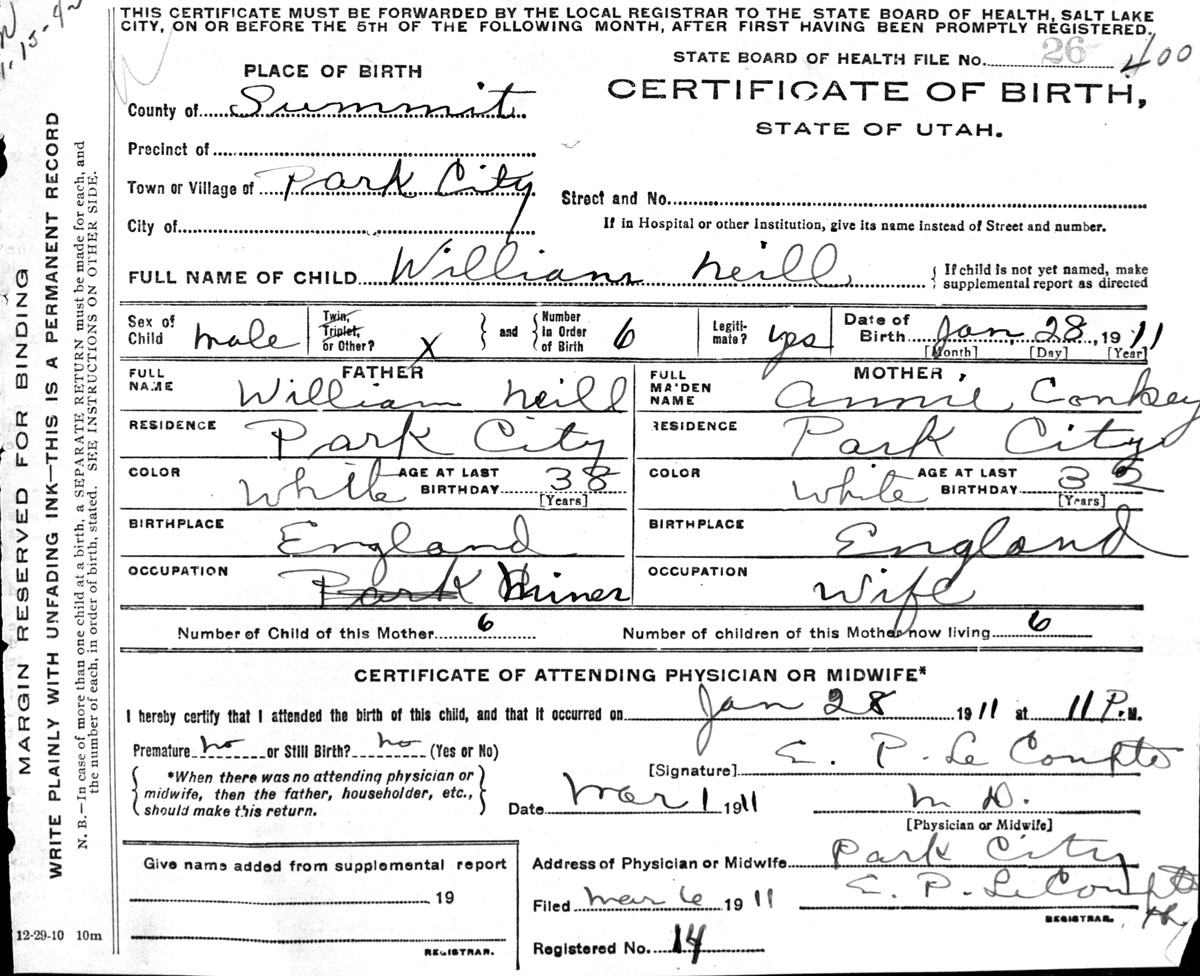 THIS CERTIFICATE MUST BE FORWARDED BY THE LOCAL REGISTRAR TO THE STATE BOARD OF HEALTH, SALT LAKE
CITY, ON OR BEFORE THE 5TH OF THE FOLLOWING MONTH, AFTER FIRST HAVING BEEN PROMPTLY REGISTERED.
STATE BOARD OF HEALTH FILE No. 26 400
PLACE OF BIRTH
CERTIFICATE OF BIRTH,
STATE OF UTAH.
County of Summit
Precinct of
Town or Village of Park City
Street and No.
City of
If in Hospital or other Institution, give its name instead of Street and number.
FULL NAME OF CHILD William Neill { If child is not yet named, make
supplemental report as directed
Sex of Child male
Twin, Triplet, or Other? X
and
Number in Order of Birth 6
Legitimate? yes
Date of Birth Jan, 28, 1911
[Month] [Day] [Year]
FATHER
FULL NAME William Neill
RESIDENCE Park City
COLOR White AGE AT LAST BIRTHDAY 38 [Years]
BIRTHPLACE England
OCCUPATION Park Miner
MOTHER
FULL MAIDEN NAME Annie Conkey
RESIDENCE Park City
COLOR White AGE AT LAST BIRTHDAY 35 [Years]
BIRTHPLACE England
OCCUPATION Wife
Number of Child of this Mother 6 Number of children of this Mother now living 6
CERTIFICATE OF ATTENDING PHYSICIAN OR MIDWIFE*
I hereby certify that I attended the birth of this child, and that it occurred on Jan 28 1911 at 11 P.M.
Premature no or Still Birth? no (Yes or No)
[Signature] E. P. Le Compte
*When there was no attending physician or
midwife, then the father, householder, etc.,
should make this return.
Date Mar 1 1911 M D.
[Physician or Midwife]
Give name added from supplemental report
19
REGISTRAR.
Address of Physician or Midwife Park City
Filed Mar 6 1911 E. P. Le Compte
REGISTRAR.
Registered No. 14
12-29-10 10m
MARGIN RESERVED FOR BINDING
WRITE PLAINLY WITH UNFADING INK—THIS IS A PERMANENT RECORD
N. B.—In case of more than one child at a birth, a SEPARATE RETURN must be made for each, and
the number of each, in order of birth, stated. SEE INSTRUCTIONS ON OTHER SIDE.